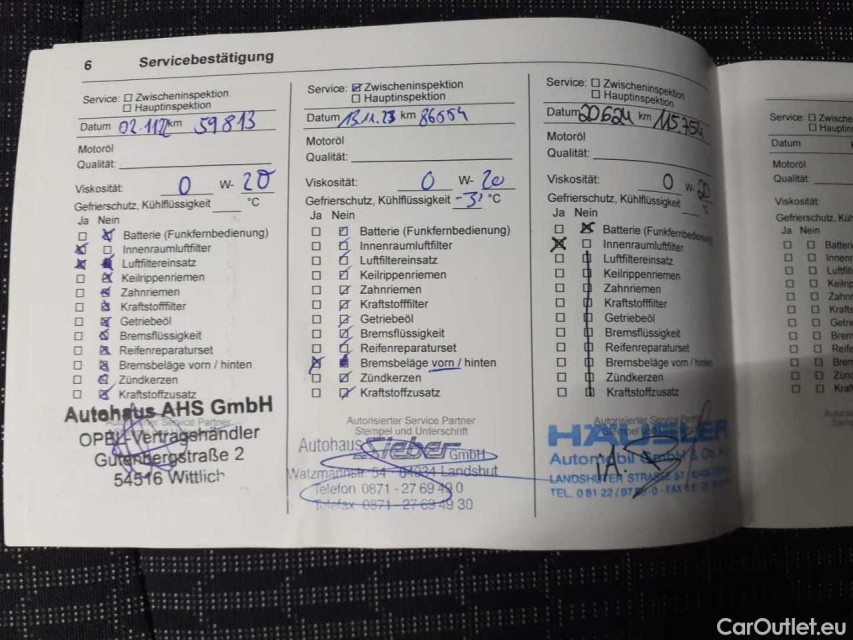 6 Servicebestätigung
Service: Zwischeninspektion
Hauptinspektion
Datum 02.11.22 km 59813
Motoröl
Qualität:
Viskosität: 0 W- 20
Gefrierschutz, Kühlflüssigkeit °C
Ja Nein
Batterie (Funkfernbedienung)
Innenraumluftfilter
Luftfiltereinsatz
Keilrippenriemen
Zahnriemen
Kraftstofffilter
Getriebeöl
Bremsflüssigkeit
Reifenreparaturset
Bremsbeläge vorn / hinten
Zündkerzen
Kraftstoffzusatz
Autohaus AHS GmbH
OPEL-Vertragshändler
Gutenbergstraße 2
54516 Wittlich
Service: Zwischeninspektion
Hauptinspektion
Datum 13.11.23 km 86554
Motoröl
Qualität:
Viskosität: 0 W- 20
Gefrierschutz, Kühlflüssigkeit °C
Ja Nein
Batterie (Funkfernbedienung)
Innenraumluftfilter
Luftfiltereinsatz
Keilrippenriemen
Zahnriemen
Kraftstofffilter
Getriebeöl
Bremsflüssigkeit
Reifenreparaturset
Bremsbeläge vorn / hinten
Zündkerzen
Kraftstoffzusatz
Autorisierter Service Partner
Stempel und Unterschrift
Autohaus Sieber GmbH
Watzmannstr. 54 - 84034 Landshut
Telefon 0871 - 27 69 49 0
Telefax 0871 - 27 69 49 30
Service: Zwischeninspektion
Hauptinspektion
Datum 200624 km 115.754
Motoröl
Qualität:
Viskosität: 0 W- 20
Gefrierschutz, Kühlflüssigkeit °C
Ja Nein
Batterie (Funkfernbedienung)
Innenraumluftfilter
Luftfiltereinsatz
Keilrippenriemen
Zahnriemen
Kraftstofffilter
Getriebeöl
Bremsflüssigkeit
Reifenreparaturset
Bremsbeläge vorn / hinten
Zündkerzen
Kraftstoffzusatz
Autorisierter Service Partner
HÄUSLER
Automobil GmbH & Co.
LANDSHUTER STRASSE
TEL. 0 81 22 /
Service: Zwische
Hauptin
Datum
Motoröl
Qualität:
Viskosität:
Gefrierschutz, Küh
Ja Nein
CarOutlet.eu